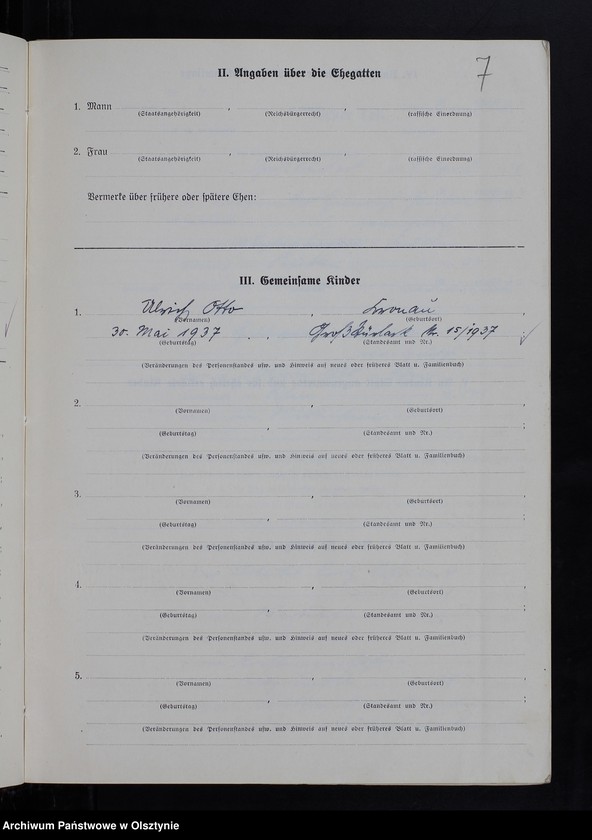 7
II. Angaben über die Ehegatten
1. Mann , ,
(Staatsangehörigkeit) (Reichsbürgerrecht) (rassische Einordnung)
2. Frau , ,
(Staatsangehörigkeit) (Reichsbürgerrecht) (rassische Einordnung)
Vermerke über frühere oder spätere Ehen:
III. Gemeinsame Kinder
1. Ulrich Otto , Kronau ,
(Vornamen) (Geburtsort)
30. Mai 1937 , Groß Stürlack Nr. 15/1937 ;
(Geburtstag) (Standesamt und Nr.)
(Veränderungen des Personenstandes usw. und Hinweis auf neues oder früheres Blatt u. Familienbuch)
2. , ,
(Vornamen) (Geburtsort)
, ;
(Geburtstag) (Standesamt und Nr.)
(Veränderungen des Personenstandes usw. und Hinweis auf neues oder früheres Blatt u. Familienbuch)
3. , ,
(Vornamen) (Geburtsort)
, ;
(Geburtstag) (Standesamt und Nr.)
(Veränderungen des Personenstandes usw. und Hinweis auf neues oder früheres Blatt u. Familienbuch)
4. , ,
(Vornamen) (Geburtsort)
, ;
(Geburtstag) (Standesamt und Nr.)
(Veränderungen des Personenstandes usw. und Hinweis auf neues oder früheres Blatt u. Familienbuch)
5. , ,
(Vornamen) (Geburtsort)
, ;
(Geburtstag) (Standesamt und Nr.)
(Veränderungen des Personenstandes usw. und Hinweis auf neues oder früheres Blatt u. Familienbuch)
Archiwum Państwowe w Olsztynie